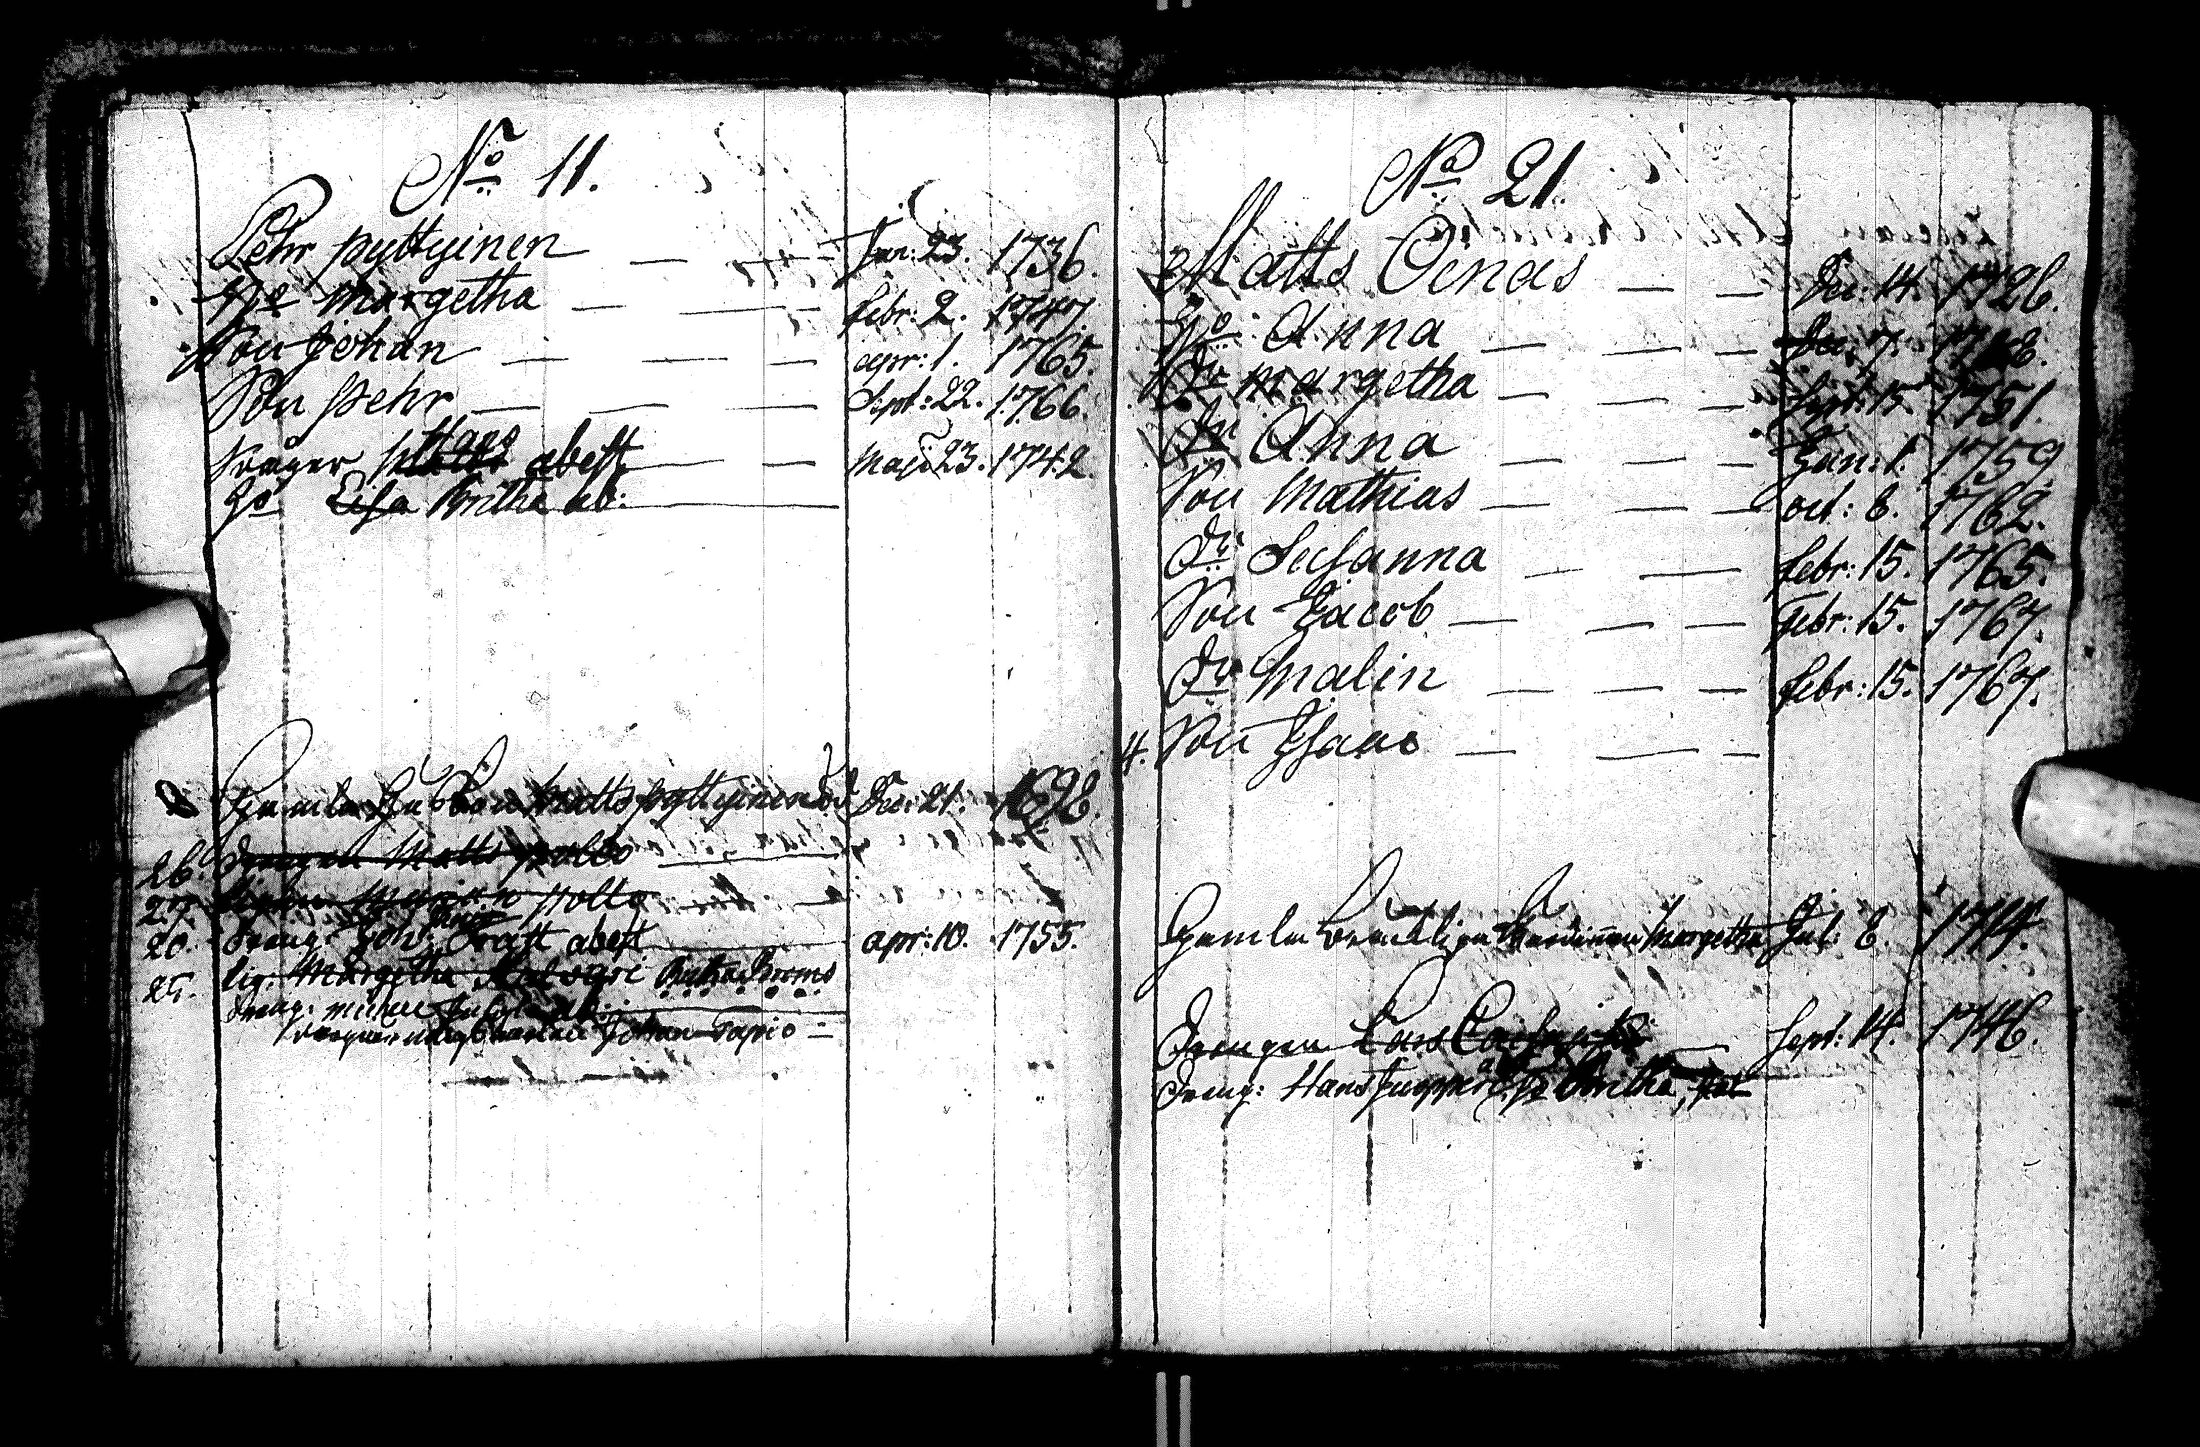 No 11.
Pehr pyttyinen Jan: 23. 1736.
Ho Margetha febr: 2. 1747.
Son Johan apr: 1. 1765.
Son pehr Sept: 22. 1766.
Hans
Swåger abest Maji 23. 1742.
Ho Lisa Britha ab:
Gamla Matts pyttyinen Dec: 21. 1698.
26. Drengen Matts polso
27. Pigan Maria polto
20. Dreng: Joh: abest apr: 10. 1755.
25. Pig: Margetha Britha Broms
Dreng: Michel ab:
Johan Tapio
No 21.
Matts Oenas Dec: 14. 1726.
Ho Anna Dec: 7. 1728.
Dr Margetha Sept: 15. 1751.
Dr Anna Jan: 1. 1759
Son Mathias oct: 6. 1762.
Dr Susanna febr: 15. 1765.
Son Jacob Febr: 15. 1767.
Dr Malin febr: 15. 1767.
4. Son Isaac
Gamla Margetha Jul: 8. 1714.
Drengen Lars Sept: 14. 1746.
Dreng: Hans Britha